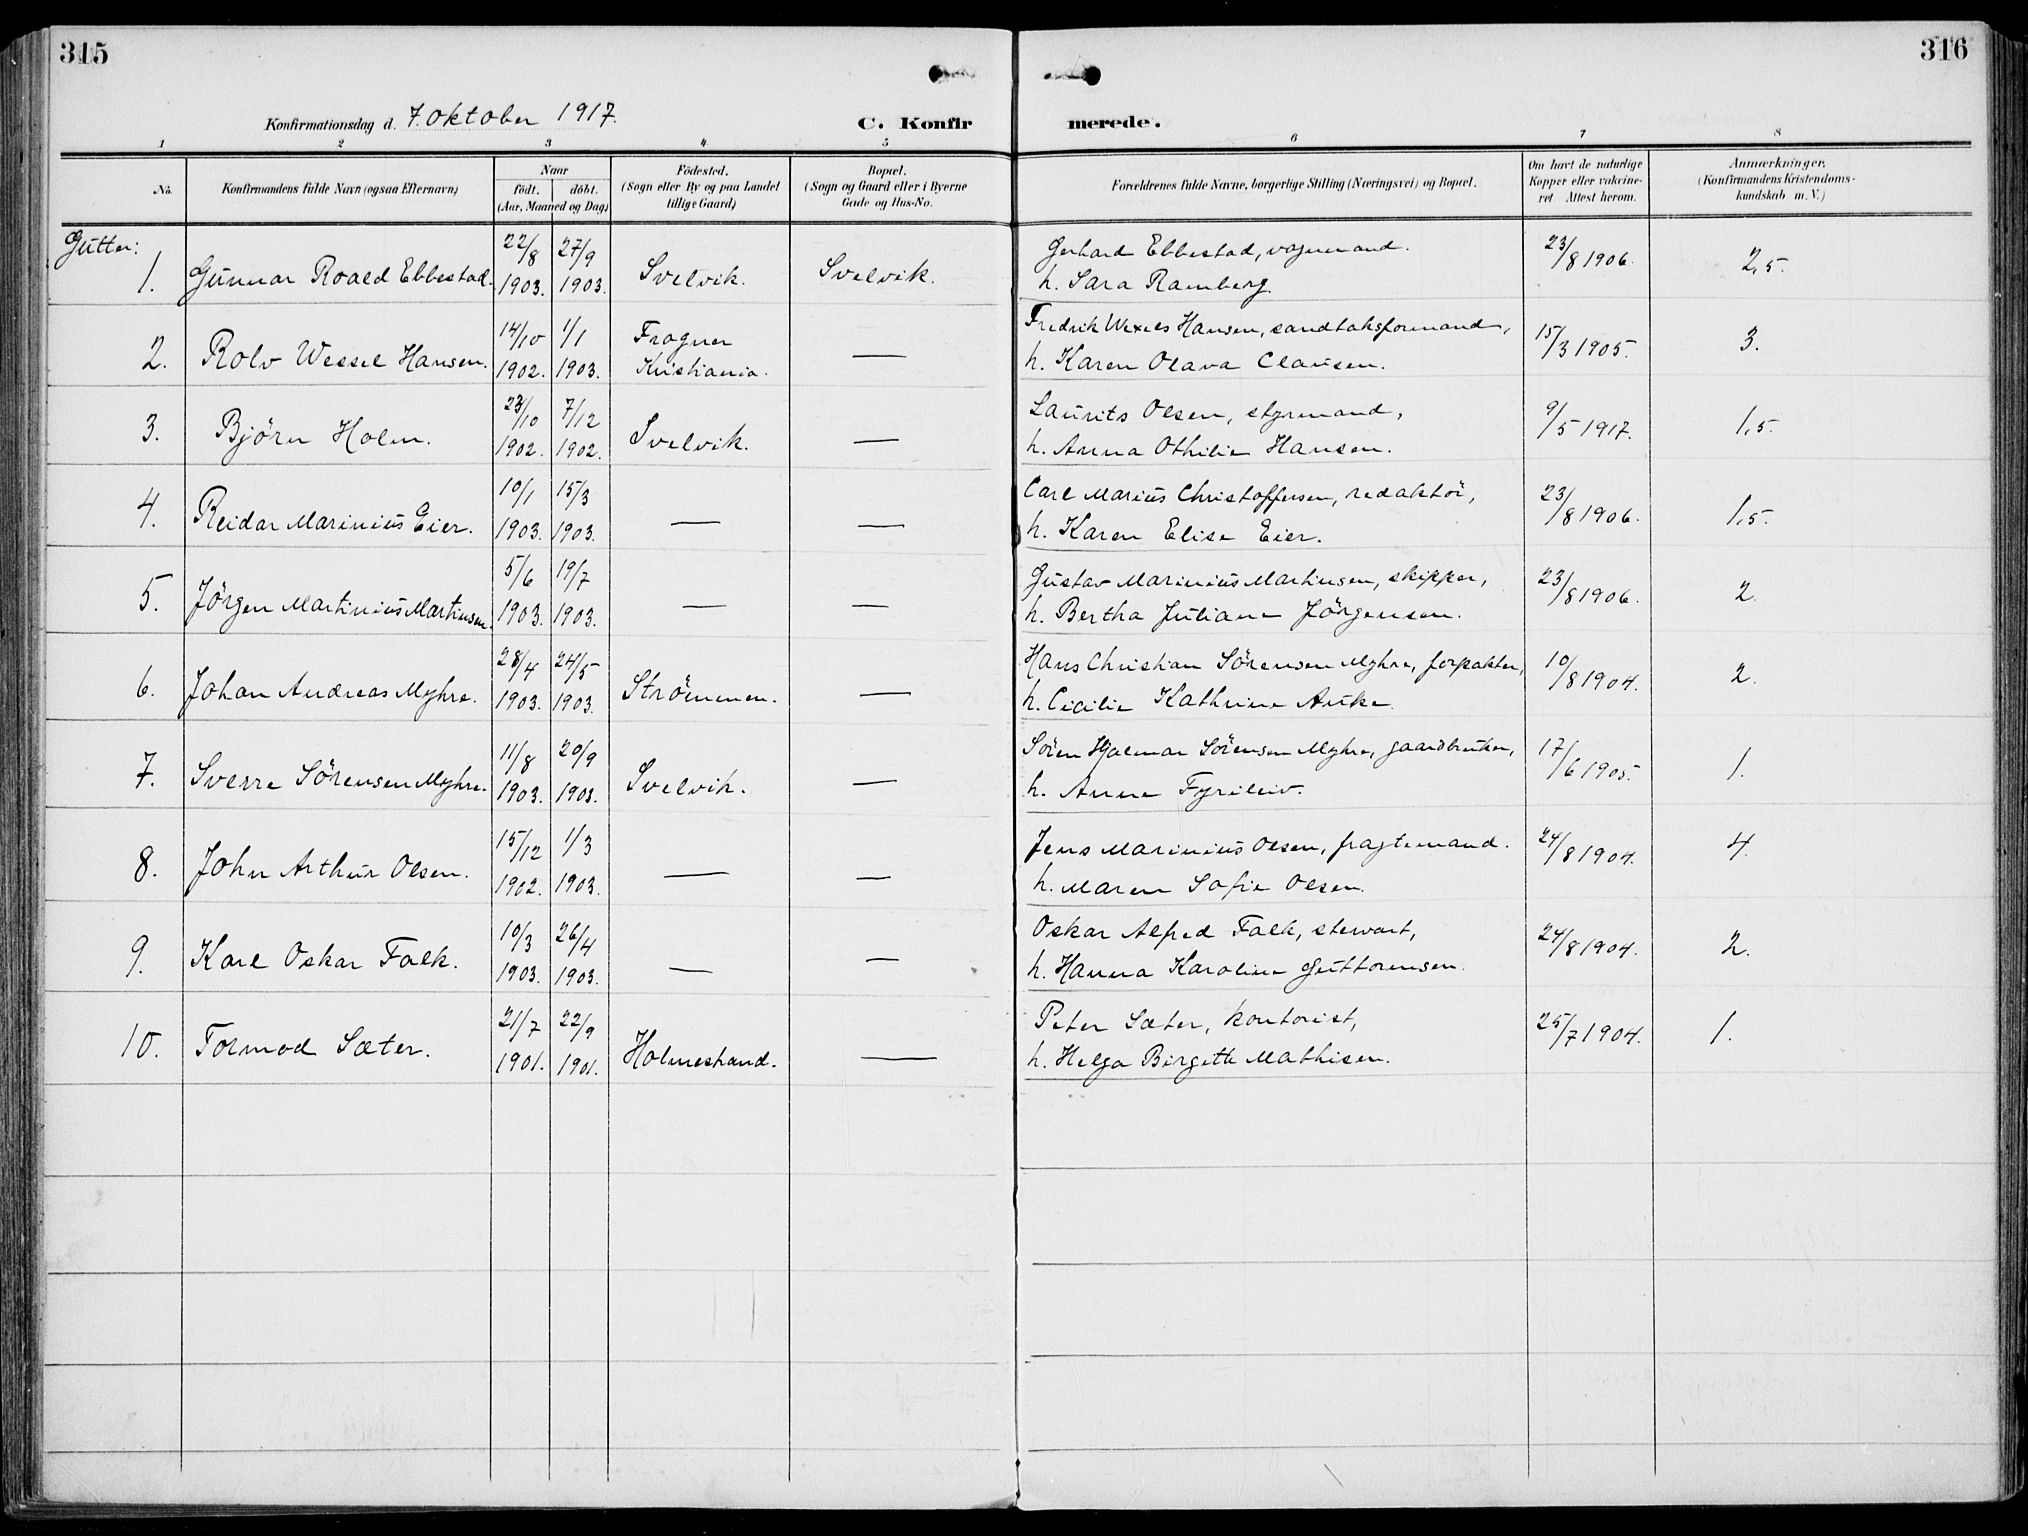 315
316
Konfirmationsdag d. 7. oktober 1917.
C. Konfirmerede.
1 2 3 4 5 6 7 8
No.
Konfirmandens fulde Navn (ogsaa Efternavn)
Naar
födt. döbt.
(Aar, Maaned og Dag)
Födested.
(Sogn eller By og paa Landet
tillige Gaard)
Bopæl.
(Sogn og Gaard eller i Byerne
Gade og Hus-No.
Forældrenes fulde Navne, borgerlige Stilling (Næringsvei) og Bopæl.
Om havt de naturlige
Kopper eller vakcine-
ret. Attest herom.
Anmærkninger.
(Konfirmandens Kristendoms-
kundskab m. V.)
Gutter:
1. Gunnar Roald Ebbestad. 22/8 1903. 27/9 1903. Svelvik. Svelvik. Gerhard Ebbestad, vognmand. 23/8 1906. 2,5.
h. Sara Ramberg.
2. Rolv Wessel Hansen. 14/10 1902. 1/1 1903. Frogner Kristiania. — Fredrik Hansen, sandtaksformand, 15/3 1905. 3.
h. Karen Olava Clausen.
3. Bjørn Holm. 23/10 1902. 7/12 1902. Svelvik. — Laurits Olsen, styrmand, 9/5 1917. 1,5.
h. Anna Othilie Hansen.
4. Reidar Marinius Eier. 10/1 1903. 15/3 1903. — — Carl Marius Christoffersen, redaktör, 23/8 1906. 1,5.
h. Karen Elise Eier.
5. Jörgen Martinius Martinsen. 5/6 1903. 19/7 1903. — — Gustav Marinius Martinsen, skipper, 23/8 1906. 2.
h. Bertha Juliane Jörgensen.
6. Johan Andreas Myhre. 28/4 1903. 24/5 1903. Strömmen. — Hans Christian Sörensen Myhre, forpakter, 10/8 1904. 2.
h. Cicilie Kathrine Auke.
7. Sverre Sörensen Myhre. 11/8 1903. 20/9 1903. Svelvik. — Sören Hjalmar Sörensen Myhre, gaardbruker, 17/6 1905. 1.
h. Anna Fyrileiv.
8. John Arthur Olsen. 15/12 1902. 1/3 1903. — — Jens Marinius Olsen, fragtemand. 24/8 1904. 4.
h. Maren Sofie Olsen.
9. Karl Oskar Falk. 10/3 1903. 26/4 1903. — — Oskar Alfred Falk, stewart, 24/8 1904. 2.
h. Hanna Karoline Guttormsen.
10. Tormod Sæter. 21/7 1901. 22/9 1901. Holmestrand. — Peter Sæter, kontorist, 25/7 1904. 1.
h. Helga Birgitte Mathisen.